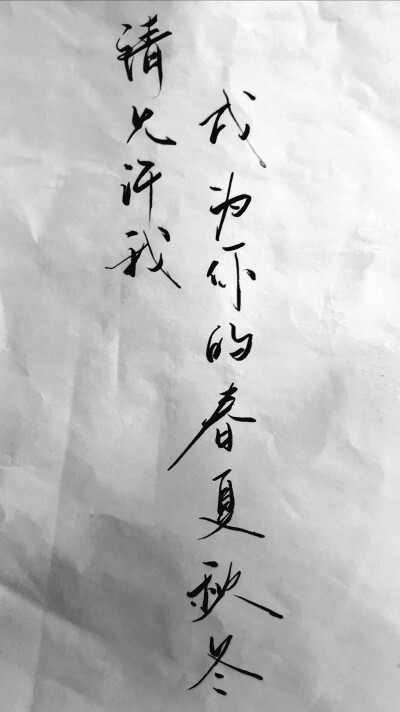 请允许我
成为你的春夏秋冬